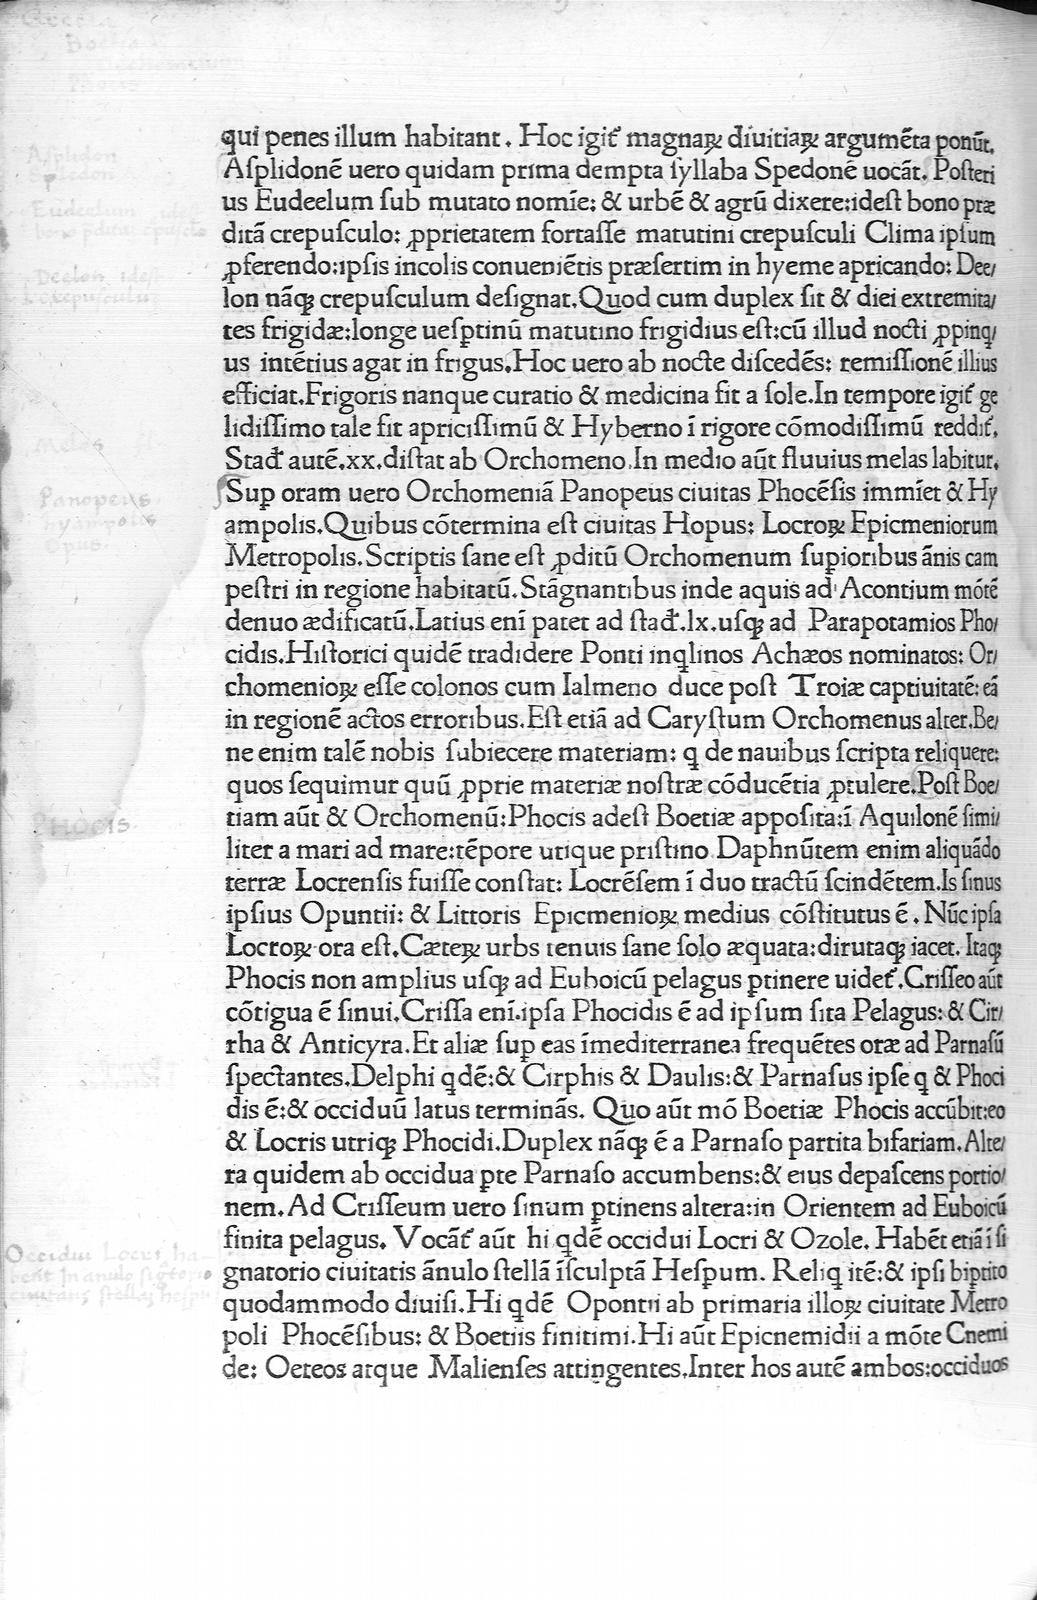 qui penes illum habitant. Hoc igit᷑ magnaꝝ diuitiaꝝ argumēta ponūt.
Aſplidonē uero quidam prima dempta ſyllaba Spedonē uocāt. Poſteri
us Eudeelum ſub mutato nomīe: & urbē & agrū dixere:ideſt bono præ
ditā crepuſculo: ꝓprietatem fortaſſe matutini crepuſculi Clima ipſum
ꝓferendo:ipſis incolis conueniētis præſertim in hyeme apricando: Dee/
lon nāꝗ crepuſculum deſignat. Quod cum duplex ſit & diei extremita/
tes frigidæ:longe ueſꝑtinū matutino frigidius eſt:cū illud nocti ꝓpinq/
us intērius agat in frigus. Hoc uero ab nocte diſcedēs: remiſſionē illius
efficiat. Frigoris nanque curatio & medicina fit a ſole. In tempore igit᷑ ge
lidiſſimo tale fit apriciſſimū & Hyberno ī rigore cōmodiſſimū reddit᷑.
Stad̄ autē.xx.diſtat ab Orchomeno. In medio aūt fluuius melas labitur.
Suꝑ oram uero Orchomeniā Panopeus ciuitas Phocēſis immīet & Hy
ampolis. Quibus cōtermina eſt ciuitas Hopus: Locroꝝ Epicmeniorum
Metropolis. Scriptis ſane eſt ꝓditū Orchomenum ſuꝑioribus ānis cam
peſtri in regione habitatū. Stāgnantibus inde aquis ad Acontium mōtē
denuo ædificatū. Latius enī patet ad ſtad̄.lx.uſꝗ ad Parapotamios Pho/
cidis. Hiſtorici quidē tradidere Ponti inqlinos Achæos nominatos: Or/
chomenioꝝ eſſe colonos cum Ialmeno duce poſt Troiæ captiuitatē: eā
in regionē actos erroribus. Eſt etiā ad Caryſtum Orchomenus alter. Be/
ne enim talē nobis ſubiecere materiam: q de nauibus ſcripta reliquere:
quos ſequimur quū ꝓprie materiæ noſtræ cōducētia ꝓtulere. Poſt Boe/
tiam aūt & Orchomenū: Phocis adeſt Boetiæ appoſita:ī Aquilonē ſimi/
liter a mari ad mare:tēpore utique priſtino Daphnūtem enim aliquādo
terræ Locrenſis fuiſſe conſtat: Locrēſem ī duo tractū ſcindētem. Is ſinus
ipſius Opuntii: & Littoris Epicmenioꝝ medius cōſtitutus ē. Nūc ipſa
Locroꝝ ora eſt. Cæteꝝ urbs tenuis ſane ſolo æquata:dirutaꝗ iacet. Itaꝗ
Phocis non amplius uſꝗ ad Euboicū pelagus ꝑtinere uidet᷑. Criſſeo aūt
cōtigua ē ſinui. Criſſa enī.ipſa Phocidis ē ad ipſum ſita Pelagus: & Cir/
rha & Anticyra. Et aliæ ſuꝑ eas īmediterranea frequētes oræ ad Parnaſū
ſpectantes. Delphi qdē:& Cirphis & Daulis:& Parnaſus ipſe q & Phoci
dis ē:& occiduū latus terminās. Quo aūt mō Boetiæ Phocis accūbit:eo
& Locris utriꝗ Phocidi. Duplex nāꝗ ē a Parnaſo partita bifariam. Alte/
ra quidem ab occidua ꝑte Parnaſo accumbens:& eius depaſcens portio/
nem. Ad Criſſeum uero ſinum ꝑtinens altera:in Orientem ad Euboicū
finita pelagus. Vocāt᷑ aūt hi qdē occidui Locri & Ozole. Habēt etiā ī ſi
gnatorio ciuitatis ānulo ſtellā īſculptā Heſꝑum. Reliq itē:& ipſi biꝑtito
quodammodo diuiſi. Hi qdē Opontii ab primaria illoꝝ ciuitate Metro
poli Phocēſibus: & Boetiis finitimi. Hi aūt Epicnemidii a mōte Cnemi
de: Oeteos atque Malienſes attingentes. Inter hos autē ambos:occiduos
Boetia
Phocis
Aſplidon
Spledon
Eudeelum ideſt
Deelon ideſt
crepuſculu
Melas fl.
Panopeus
hyampolis
Opus.
PHOCIS.
Occidui Locri ha-
bent In anulo ſigtorio
ciuitatis ſtellaȝ heſpu